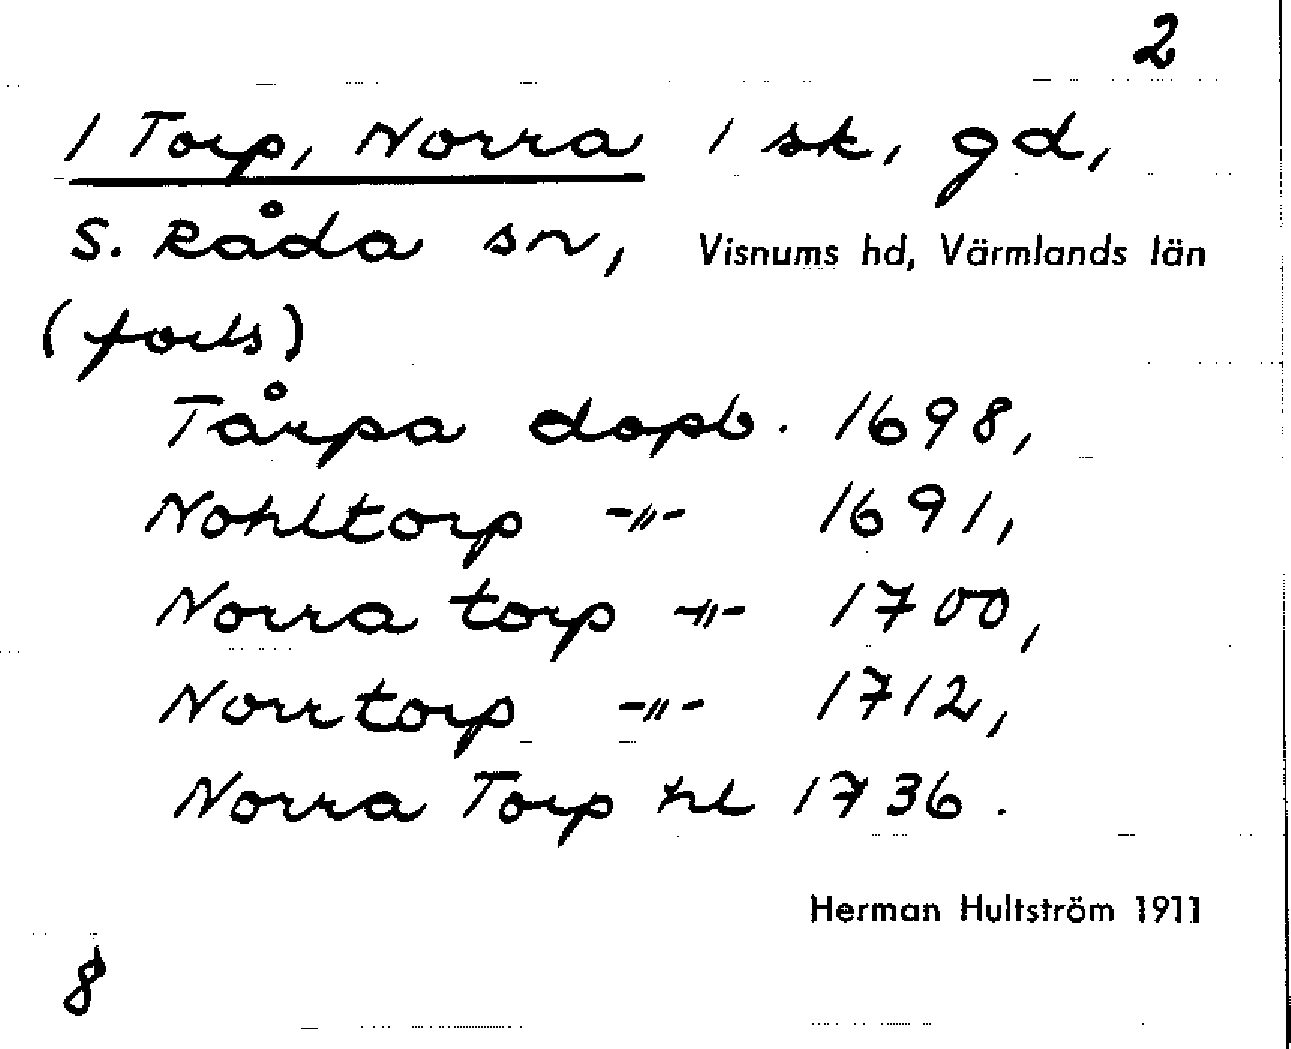 2
1 Torp, Norra 1 sk, gd,
S. Råda sn, Visnums hd, Värmlands län
(forts)
Tårpa dopb. 1698,
Nohltorp -"- 1691,
Norra torp -"- 1700,
Norrtorp -"- 1712,
Norra Torp hl 1736.
Herman Hultström 1911
8